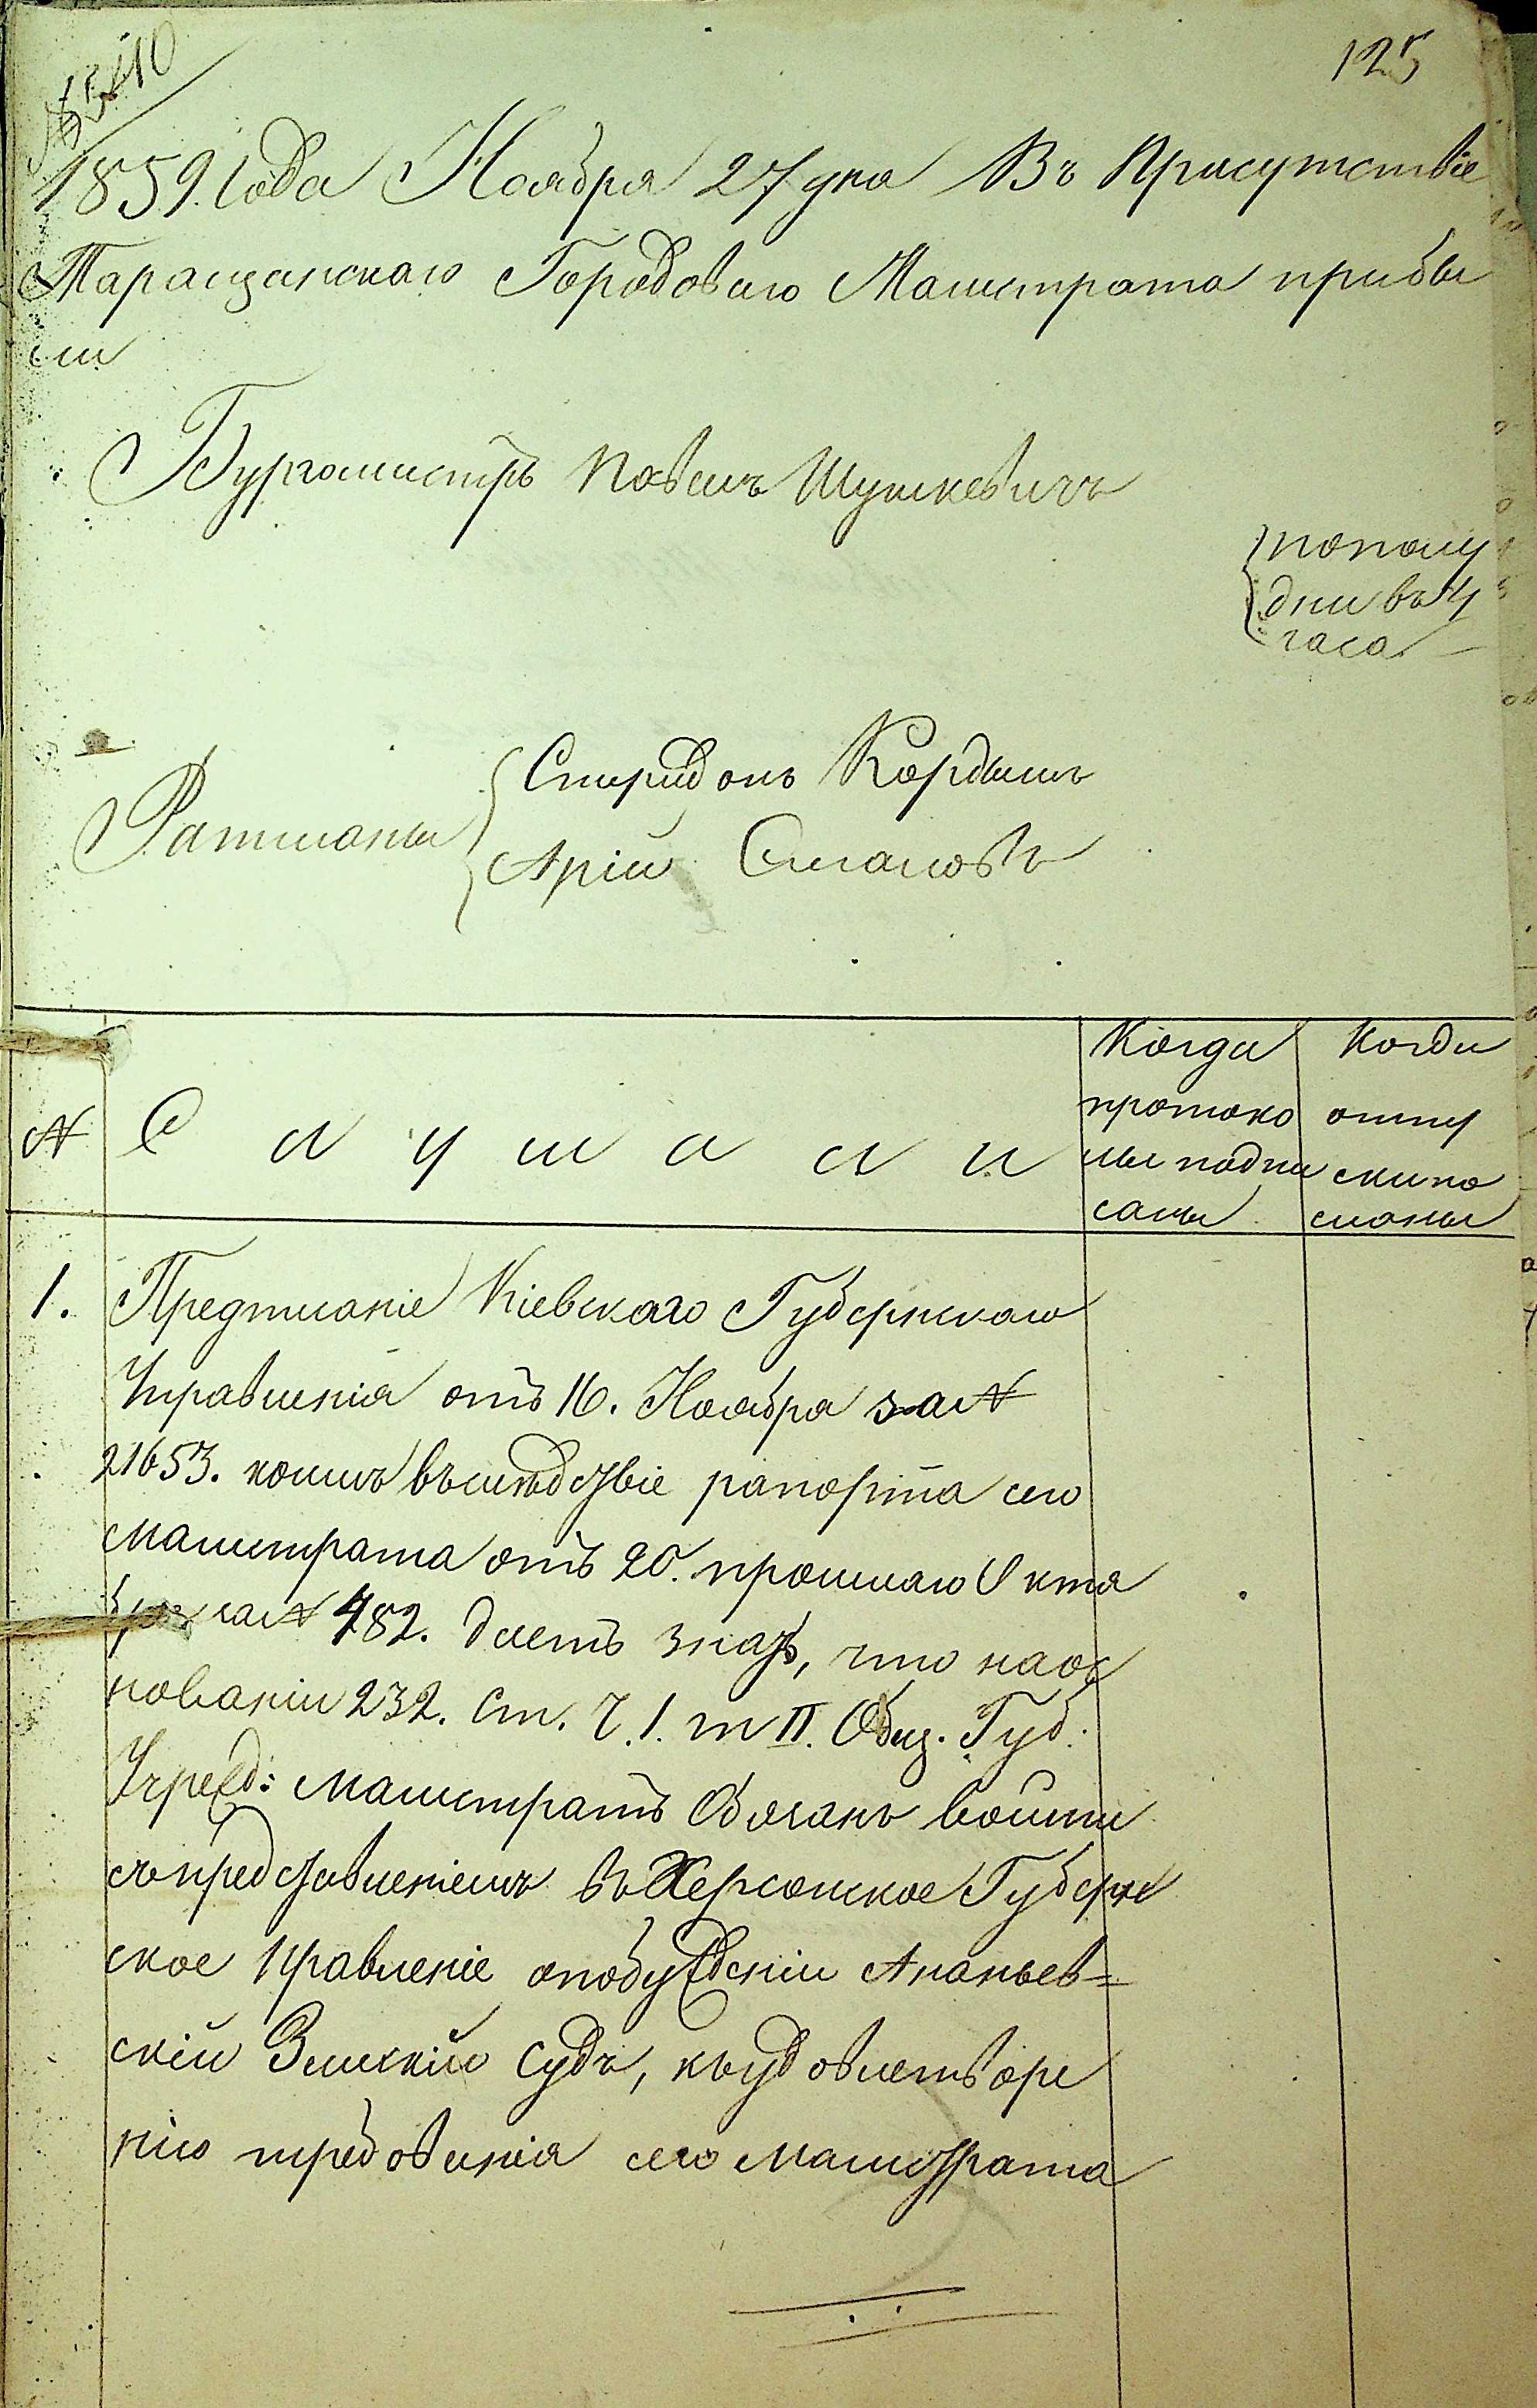 125
1859. Года Ноября 27 дня Въ Присутствіе
Таращанскаго Городоваго Магистрата прибы
ли
Бургомистръ Павелъ Шушкевичъ
пополу
дни въ 4
часа
Ратманы
Спиридонъ Кордышъ
Арій Смаловъ
№
Слушали
Когда
протоко
лы подпи
саны
Когда
отпу
ски по
сланы
1. Предписаніе Кіевскаго Губернскаго
Правленія отъ 16. Ноября за №
21653. коимъ въслѣдствіе рапорта сего
Магистрата отъ 20. прошлаго Октя
бря за № 482. даетъ знать, что наос
нованіи 232. Ст. Ч. 1. т II. Общ. Губ.
Учрежд: Магистратъ обязанъ войти
съпредставленіемъ въ Херсонское Губерн
ское Правленіе опобужденіи Ананьев=
скій Земскій Судъ, къудовлетворе
нію требованія сего Магистрата